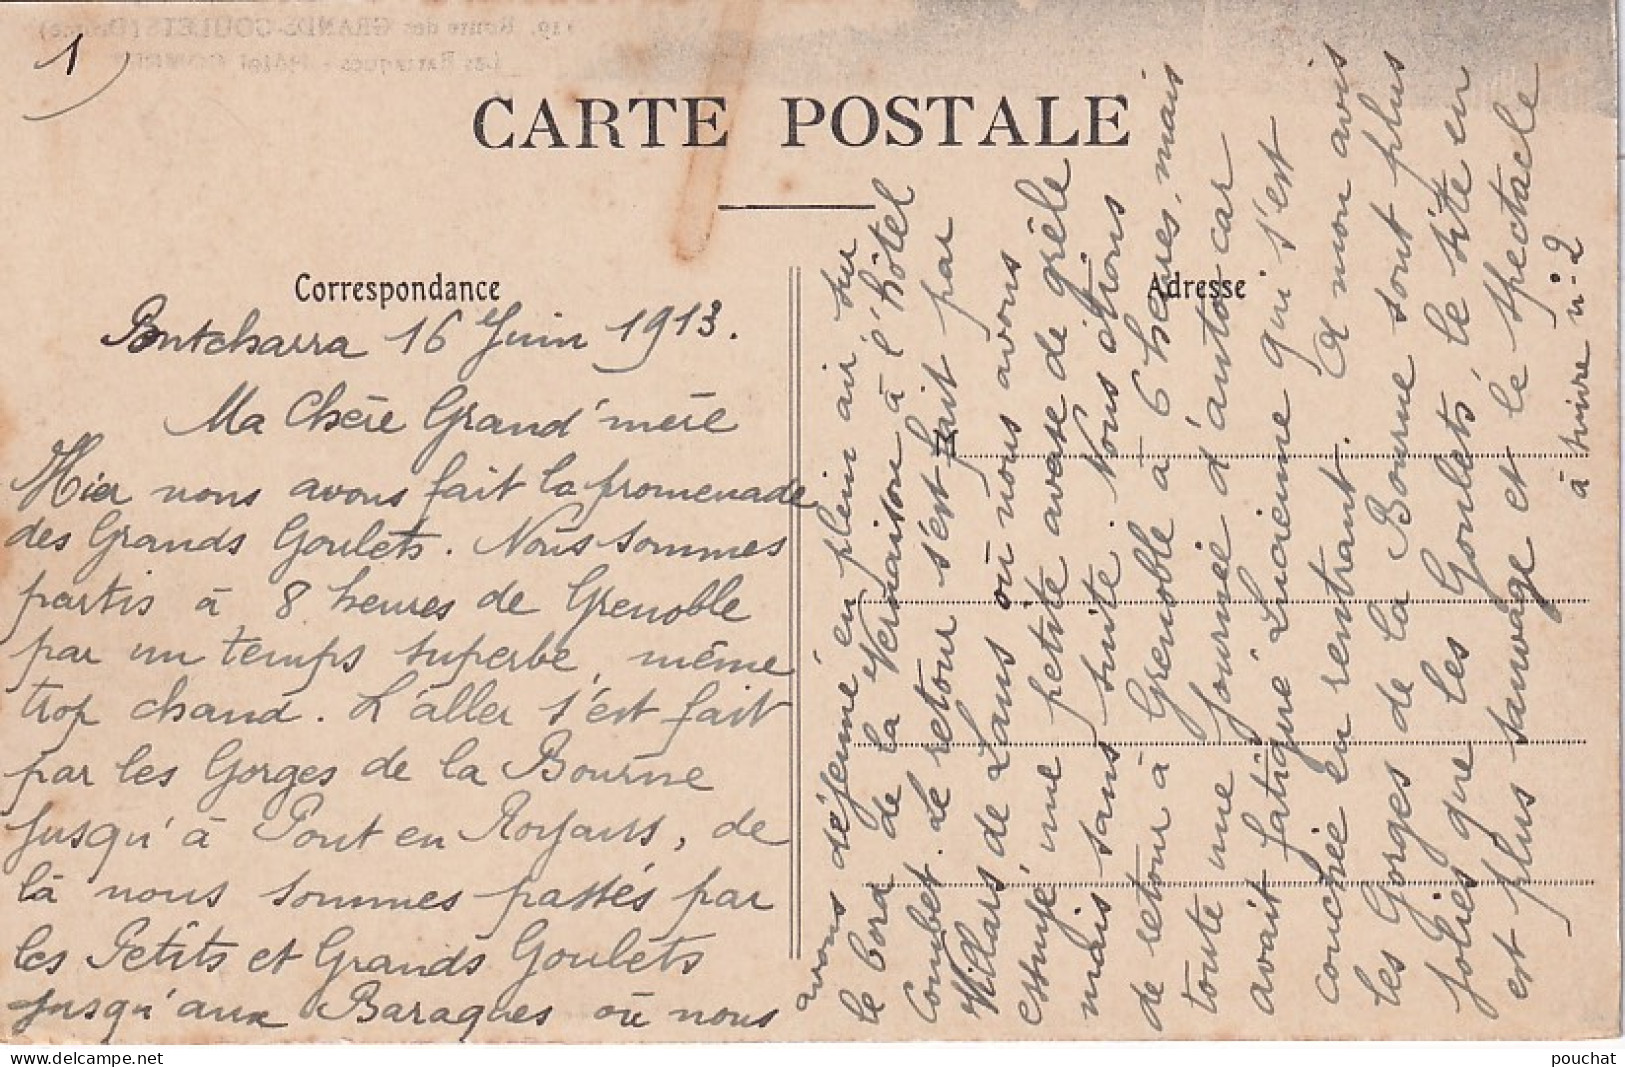 1
CARTE POSTALE
Correspondance
Adresse
Pontcharra 16 Juin 1913.
Ma Chère Grand'mère
Hier nous avons fait la promenade
des Grands Goulets. Nous sommes
partis à 8 heures de Grenoble
par un temps superbe, même
trop chaud. L'aller s'est fait
par les Gorges de la Bourne
jusqu'à Pont en Royans, de
là nous sommes passés par
les Petits et Grands Goulets
jusqu'aux Baraques où nous
avons déjeuné en plein air sur
le bord de la Vernaison à l'hôtel
Combet. Le retour s'est fait par
Villars de Lans où nous avons
essuyé une petite averse de grêle
mais sans suite. Nous étions
de retour à Grenoble à 6 heures, mais
toute une journée d'auto car
avait fatigué Lucienne qui s'est
couchée en rentrant. A mon avis
les Gorges de la Bourne sont plus
jolies que les Goulets, le site en
est plus sauvage et le spectacle
à suivre n° 2
119. Route des GRANDS-GOULETS (Drôme)
Les Baraques - Hôtel COMBET
pouchat